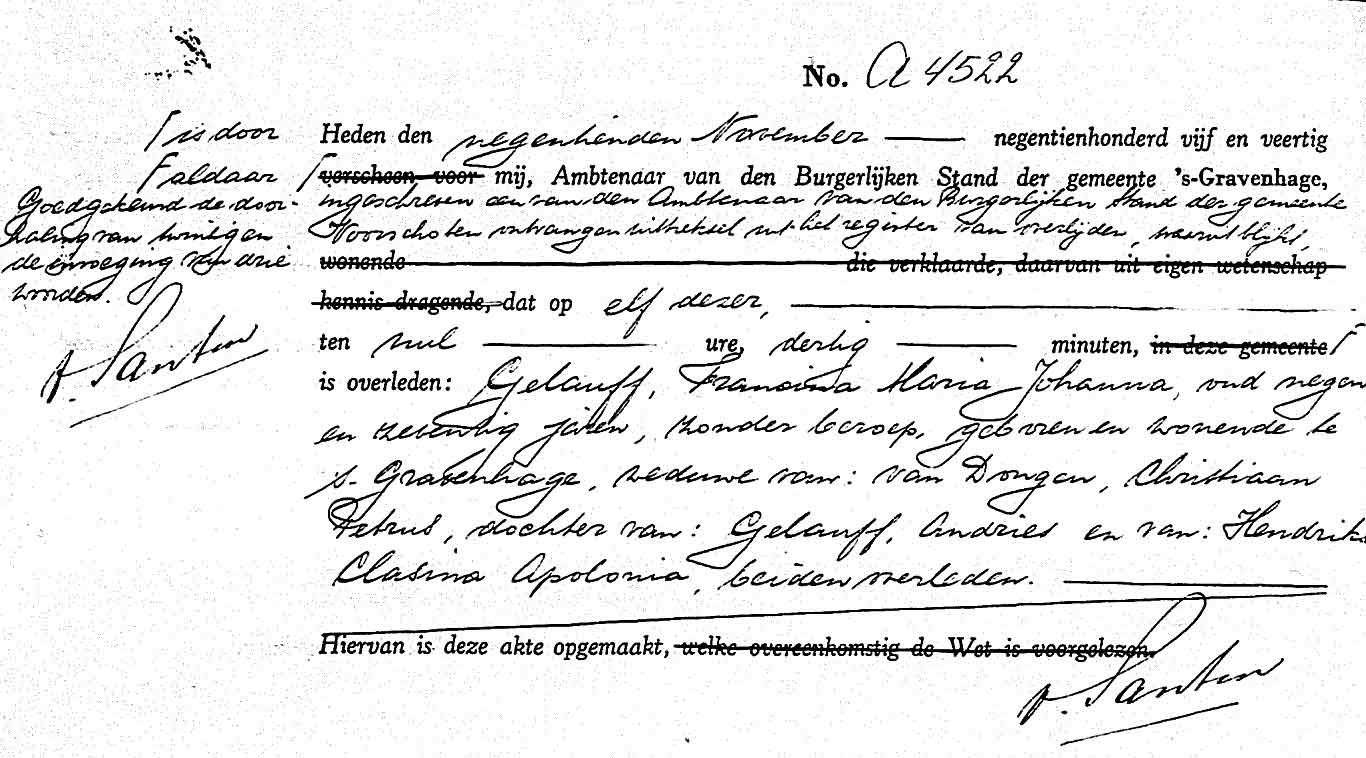 No. A 4522
Heden den negentienden November negentienhonderd vijf en veertig
⌈ is door
⌈ verscheen voor mij, Ambtenaar van den Burgerlijken Stand der gemeente 's-Gravenhage,
⌈ aldaar
ingeschreven een van den Ambtenaar van den Burgerlijken Stand der gemeente
Voorschoten ontvangen uittreksel uit het register van overlijden, waaruit blijkt,
Goedgekeurd de door-
haling van twintig en
de invoeging van drie
woorden.
v. Santen
wonende die verklaarde, daarvan uit eigen wetenschap
kennis dragende, dat op elf dezer,
ten nul ure, dertig minuten, in deze gemeente ⌈
is overleden: Gelauff, Francina Maria Johanna, oud negen
en zeventig jaren, zonder beroep, geboren en wonende te
s-Gravenhage, weduwe van: van Dongen, Christiaan
Petrus, dochter van: Gelauff, Andries en van: Hendriks
Clasina Apolonia, beiden overleden.
Hiervan is deze akte opgemaakt, welke overeenkomstig de Wet is voorgelezen.
v. Santen